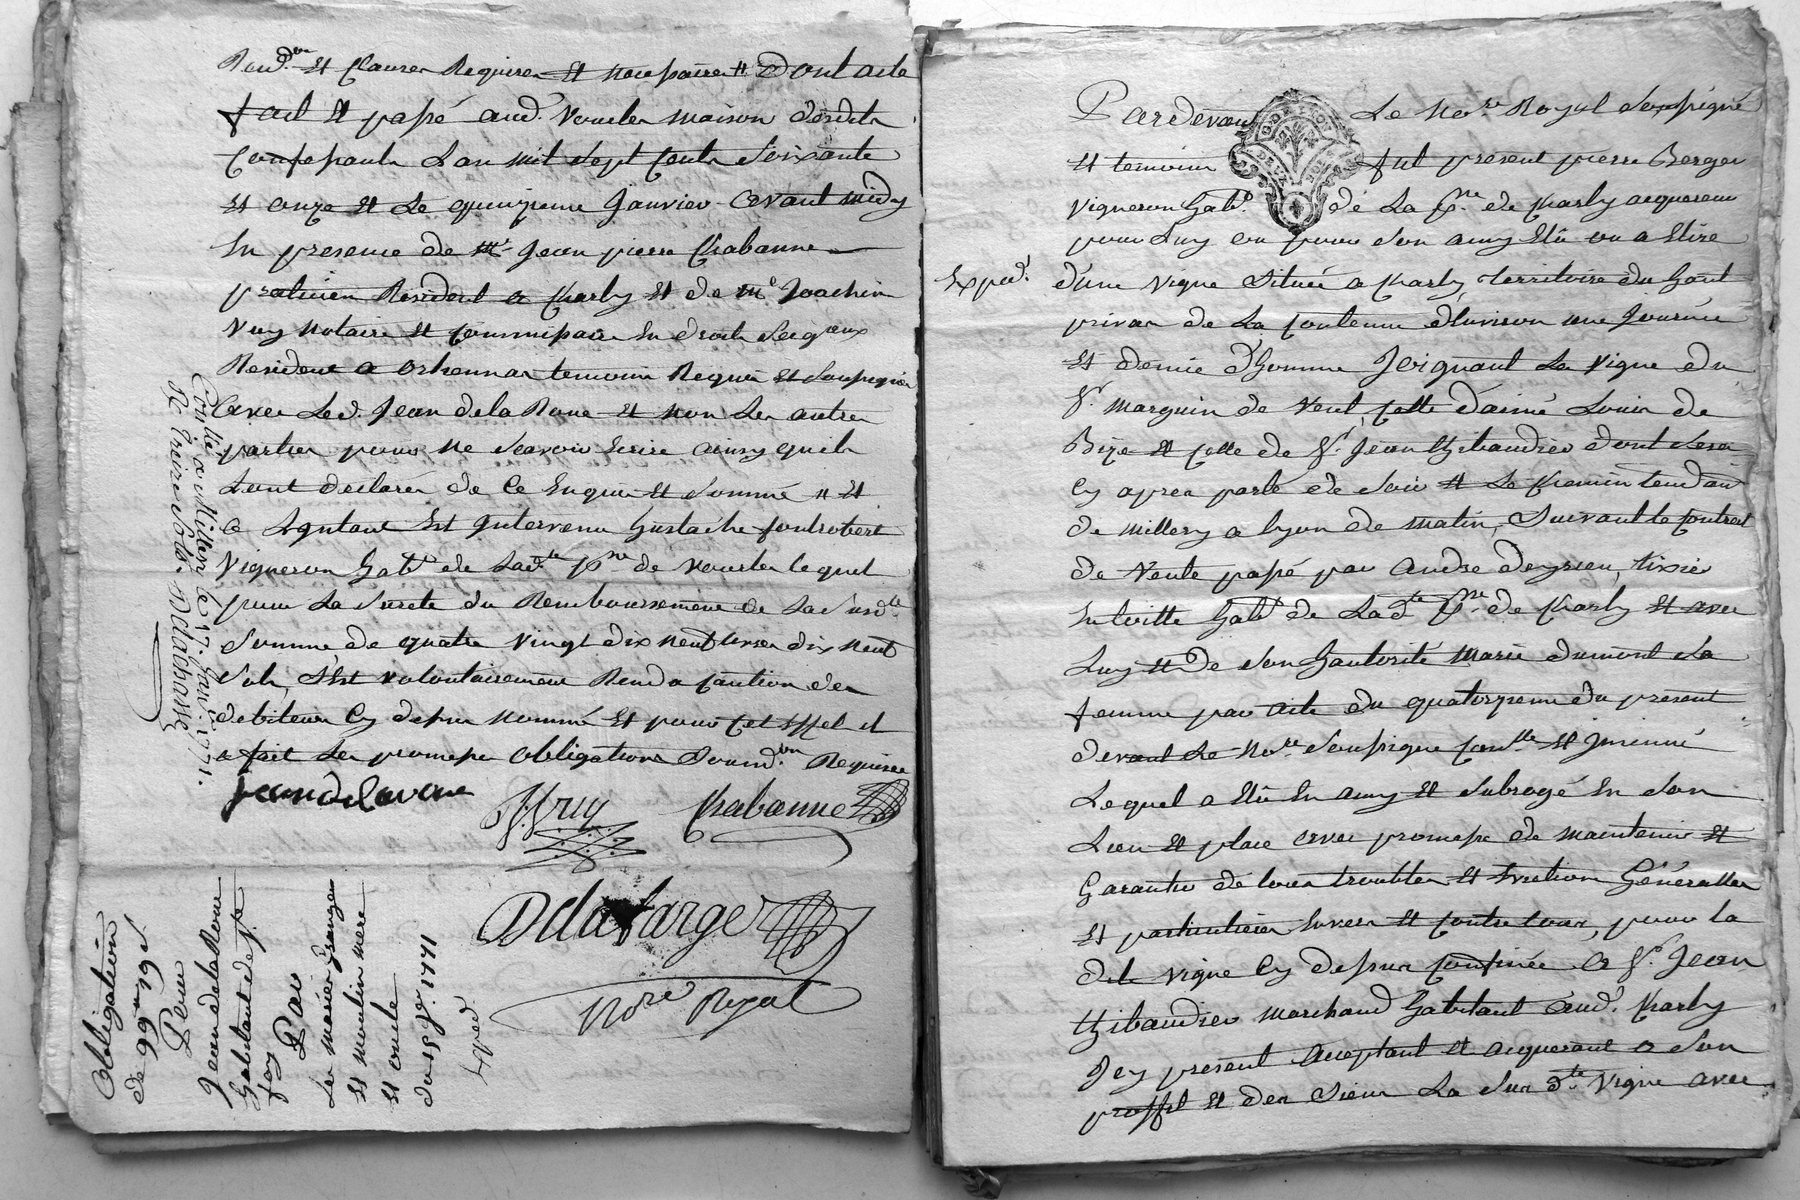 Rend.on Et Clauses Requises Et necessaires Dont acte
fait Et passé aud. Vourles maison desdits
Confessants L'an mil Sept Cents Soixante
Et onze Et Le quinzieme Janvier avant midy
En presence de Me Jean pierre Chabanne
praticien Resident a Charly Et de Me Joachim
Vuy notaire Et Commissaire En droits Seigneuriaux
Resident a temoins Requis Et Soussignés
avec Led. Jean dela Roue Et non Les autres
parties pour ne Scavoir Ecrire ainsy quils
L'ont declaré de Ce Enquis Et Sommé Et
a Lintant Est Intervenu Eustache fontrobert
Vigneron habt. de Ladte psse de Vourles lequel
pour La Sureté du Remboursement de La Susdte
Somme de quatre Vingt dix neuf Livres dix neuf
Sols, S'Est volontairement Rendu Caution des
debiteurs Cy dessus nommé Et pour Cet Effet il
a fait Les promesses obligations Soumd.on Requises
jean de la roue
J. Vuy
Chabanne
Delafarge
Nore Royal
Conllé a Millery le 17. Janv. 1771.
Rç treize sols Delachanal
Obligation
de 99 ₶ 19 s
Pour
Jean de la Roue
habitant de St
foy
Par
Les mariés granger
Et moulin mere
Et oncle
du 15 Jer 1771
Exped
Pardevant Le Nore Royal Soussigné
Et temoins fut present pierre Berger
Vigneron habt. de La psse de Charly acquereur
pour Luy ou pour Son amy Elû ou a Elire
Exped.
d'une Vigne Située a Charly, territoire du haut
privas de La Contenue d'Environ une Journée
Et demie d'homme Joignant La Vigne du
Sr. Marguin de vent, Celle d'aimé Louis de
Bize Et Celle de Sr. Jean thibaudier dont Sera
Cy apres parlé de Soir Et Le Chemin tendant
de Millery a Lyon de matin, Suivant le Contrat
de Vente passé par André Deyrieu, tixier
En toille habt. de Ladte psse de Charly Et avec
Luy Et de Son hautorité Marie Dumont Sa
femme par acte du quatorzieme du present
devant Le Nore Soussigné Conllé Et Insinué
Lequel a Elû En amy Et Subrogé En Son
Lieu Et place avec promesse de maintenir Et
Garantir de tous troubles Et Evictions Généralles
Et particulieres Envers Et Contre tous, pour la
dit Vigne Cy dessus Confinée a Sr. Jean
thibaudier marchand habitant aud. Charly
Icy present acceptant Et acquerant a Son
proffit Et des Siens La Sus dte Vigne avec